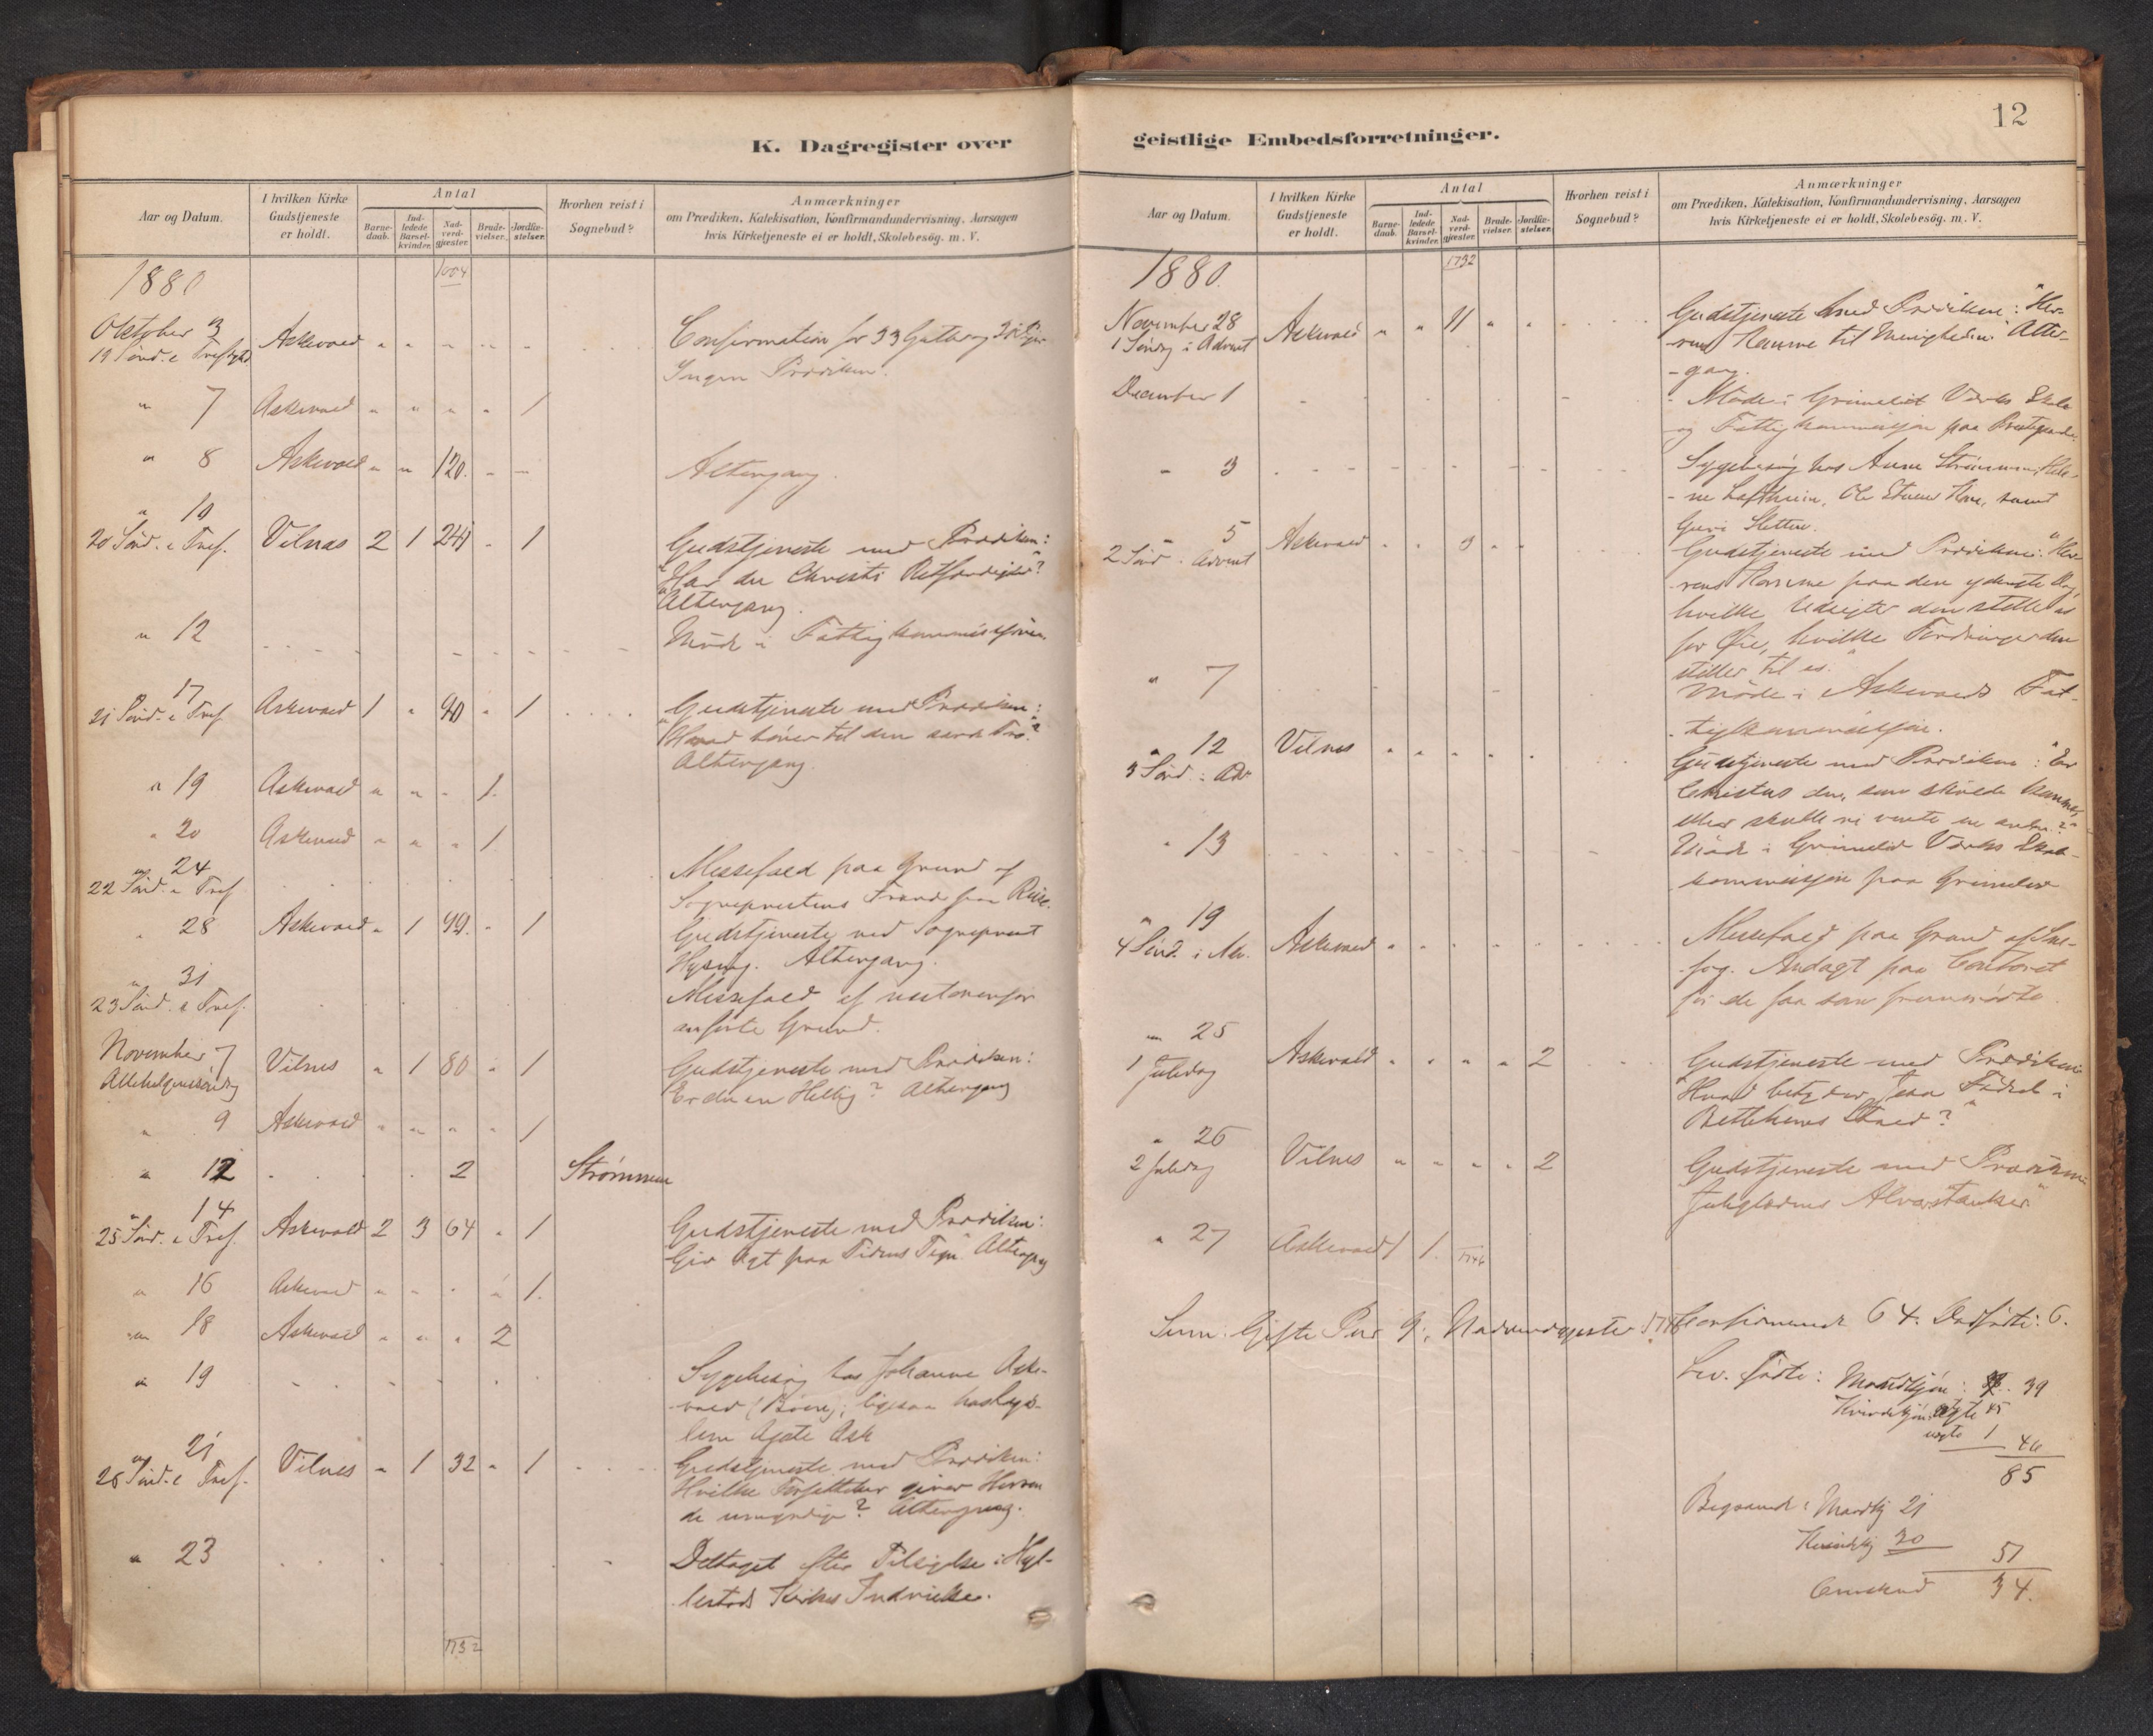 12
K. Dagregister over geistlige Embedsforretninger.
Aar og Datum.
I hvilken Kirke Gudstjeneste er holdt.
Antal
Barne-daab.
Ind-ledede Barsel-kvinder.
Nad-verd-gjæster.
Brude-vielser.
Jordfæ-stelser.
Hvorhen reist i Sognebud?
Anmærkninger
om Prædiken, Katekisation, Konfirmandundervisning, Aarsagen
hvis Kirketjeneste ei er holdt, Skolebesög. m. V.
1880
1004
Oktober 3
19 Sönd. e Trefoldgh. Askevold " " " " " Confirmation for 33 Gutter og 31 Piger
Ingen Prædiken.
" 7 Askevold " " " " 1
" 8 Askevold " " 120 - - Altergang.
" 10
20 Sönd. e Tref. Vilnæs 2 1 244 - 1 Gudstjeneste med Prædiken:
"Har du Christi Retfærdighed?"
Altergang.
" 12 Möde i Fattigkommissjonen
17
21 Sönd. e Tref Askevold 1 " 90 " 1 Gudstjeneste med Prædiken:
"Hvad hörer til den sande Tro?"
Altergang.
" 19 Askevold " " - 1
" 20 Askevold " " " 1
" 24
22 Sönd. e Tref Messefald paa Grund af
Sogneprestens Fravær paa Reise.
" 28 Askevold " 1 99 - 1 Gudstjeneste ved Sogneprest
Altergang.
" 31
23 Sönd. e Tref. Messefald af nestovenfor
anförte Grund.
November 7
Allehelgenssöndag Vilnes " 1 80 " 1 Gudstjeneste med Prædiken:
Er du en Hellig? Altergang
" 9 Askevold " " " " 1
" 12 2 Strömmen
" 14
25 Sönd. e Tref. Askevold 2 3 64 " 1 Gudstjeneste med Prædiken:
Giv Agt paa Tidens Tegn". Altergang
" 16 Askevold " " " " 1
" 18 Askevold " " " 2
" 19 Sygebesög hos Johanne Aske-
vold ligesaa hos Lægs-
lem Agate Ask
" 21
26 Sönd. e Tref. Vilnes " 1 32 " 1 Gudstjeneste med Prædiken:
Hvilke Forjættelser giver Herren
de umyndige? Altergang.
" 23 Deltaget efter Tilsigelse i Hyl-
lestads Kirkes Indvielse.
1732
Aar og Datum.
I hvilken Kirke Gudstjeneste er holdt.
Antal
Barne-daab.
Ind-ledede Barsel-kvinder.
Nad-verd-gjæster.
Brude-vielser.
Jordfæ-stelser.
Hvorhen reist i Sognebud?
Anmærkninger
om Prædiken, Katekisation, Konfirmandundervisning, Aarsagen
hvis Kirketjeneste ei er holdt, Skolebesög. m. V.
1880.
1732
November 28
1 Söndag i Advent Askevold " " 11 " " Gudstjeneste med Prædiken: "Her-
rens Komme til Menigheden". Alter-
-gang.
December 1 Möde i Grimelid Værks Skole
og Fattigkommissjon paa Prestegaarden.
" 3 Sygebesög hos Anne Strömmen, Hele-
-ne Loftheim, Ole Kone, samt
Guri Sletten.
" 5
2 Sönd i Advent Askevold " " 3 " " Gudstjeneste med Prædiken: "Her-
rens Komme paa den yderste Dag,
hvilke Udsigter den stiller os
for Öie, hvilke Fordringer den
stiller til os."
" 7 Möde i Askevolds Fat-
tigkommissjon.
" 12
3 Sönd i Adv Vilnes " " " " " Gudstjeneste med Prædiken: "Er
Christus den, som skulde komme,
eller skulle vi vente en anden?"
" 13 Möde i Grimelid Værks Skole-
kommissjon paa Grimelid
" 19
4 Sönd. i Adv. Askevold " " " " " Messefald paa Grund af Sne-
fog. Andagt paa Contoret
for de faa som fremmödte.
" 25
1 Juledag Askevold " " " " 2 Gudstjeneste med Prædiken:
"Hvad betyder Jesu Födsel i
Betlehems Stald?"
" 26
2 Juledag Vilnes " " " " 2 Gudstjeneste med Prædiken
Juleglædens Alvorstanker"
" 27 Askevold 1 1
1746
Sum: Gifte Par 9; Nadverdgjester: 1746 Confirmerede 64. Dödfödte: 6.
Lev. Födte: Mandkjön: 39
Kvindekjön ægte 45
uægte 1
46
85
Begravede: Mandkj 21
Kvindekj 30
51
Overskud 34.